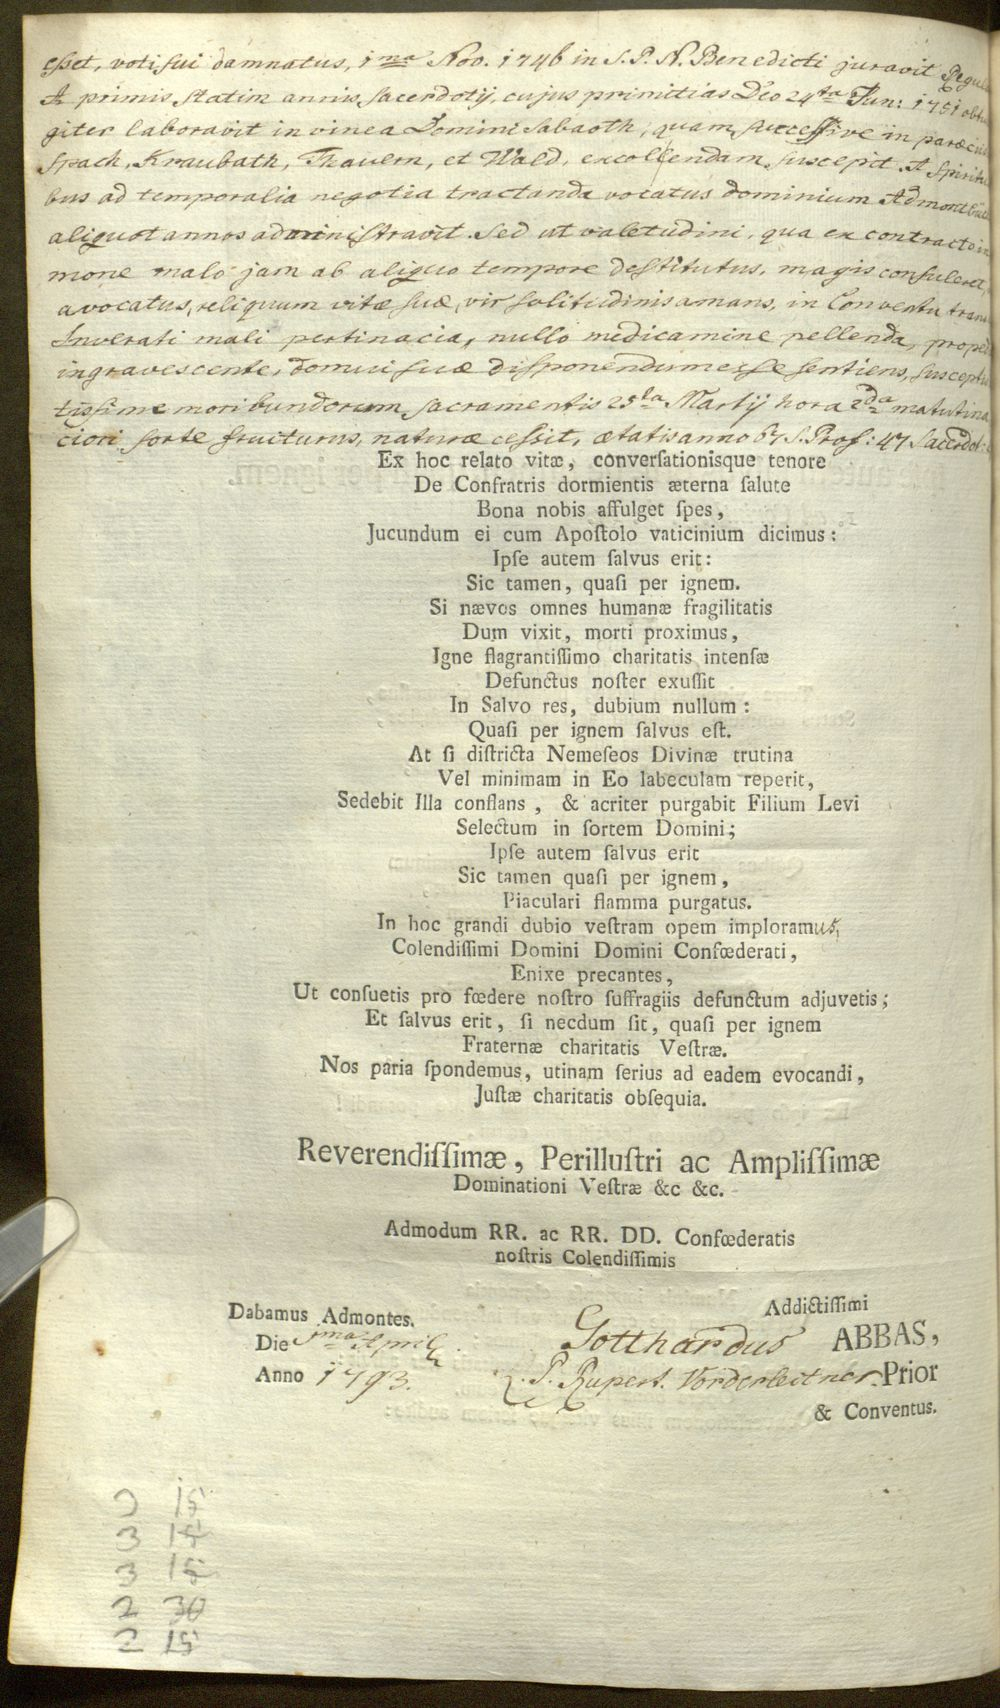 esset, voti sui damnatus, 1ma Nov. 1746 in S. P. N. Benedicti juravit Regul
A primis statim annis Sacerdotij, cujus primitias Deo 24ta Jun: 1751 obtu
giter laboravit in vinea Domini Sabaoth, quam successive in paroecii
Spach, Kraubath, Thauern, et Wald, excollendam suscepit. A Spiritu
bus ad temporalia negotia tractanda vocatus dominium Admontbü
aliquot annos administravit. Sed ut valetudini, qua ex contracto in
mone malo jam ab aliquo tempore destitutus, magis consuleret,
avocatus, reliquum vitæ suæ, vir solitudinis amans, in Conventu trans
Inverati mali pertinacia, nullo medicamine pellenda, prope
ingravescente, domui suæ disponendum esse sentiens, suscepti
tissime moribundorum sacramentis 25ta Martij hora 2da matutina
ciori sorte fruiturus, naturæ cessit, ætatis anno 67 S. Prof: 47 Sacerdot:
Ex hoc relato vitæ, converſationisque tenore
De Confratris dormientis æterna ſalute
Bona nobis affulget ſpes,
Jucundum ei cum Apoſtolo vaticinium dicimus:
Ipſe autem ſalvus erit:
Sic tamen, quaſi per ignem.
Si nævos omnes humanæ fragilitatis
Dum vixit, morti proximus,
Igne flagrantiſſimo charitatis intenſæ
Defunctus noſter exuſſit
In Salvo res, dubium nullum:
Quaſi per ignem ſalvus eſt.
At ſi diſtricta Nemeſeos Divinæ trutina
Vel minimam in Eo labeculam reperit,
Sedebit Illa conflans, & acriter purgabit Filium Levi
Selectum in ſortem Domini;
Ipſe autem ſalvus erit
Sic tamen quaſi per ignem,
Piaculari flamma purgatus.
In hoc grandi dubio veſtram opem imploramus,
Colendiſſimi Domini Domini Confœderati,
Enixe precantes,
Ut conſuetis pro fœdere noſtro ſuffragiis defunctum adjuvetis;
Et ſalvus erit, ſi necdum ſit, quaſi per ignem
Fraternæ charitatis Veſtræ.
Nos paria ſpondemus, utinam ſerius ad eadem evocandi,
Juſtæ charitatis obſequia.
Reverendiſſimæ, Perilluſtri ac Ampliſſimæ
Dominationi Veſtræ &c &c.
Admodum RR. ac RR. DD. Confœderatis
noſtris Colendiſſimis
Dabamus Admontes.
Die 1ma April
Anno 1793.
Addictiſſimi
Gotthardus ABBAS,
P. Rupert. Vorderleitner. Prior
& Conventus.
2 15
3 15
3 15
2 30
2 15